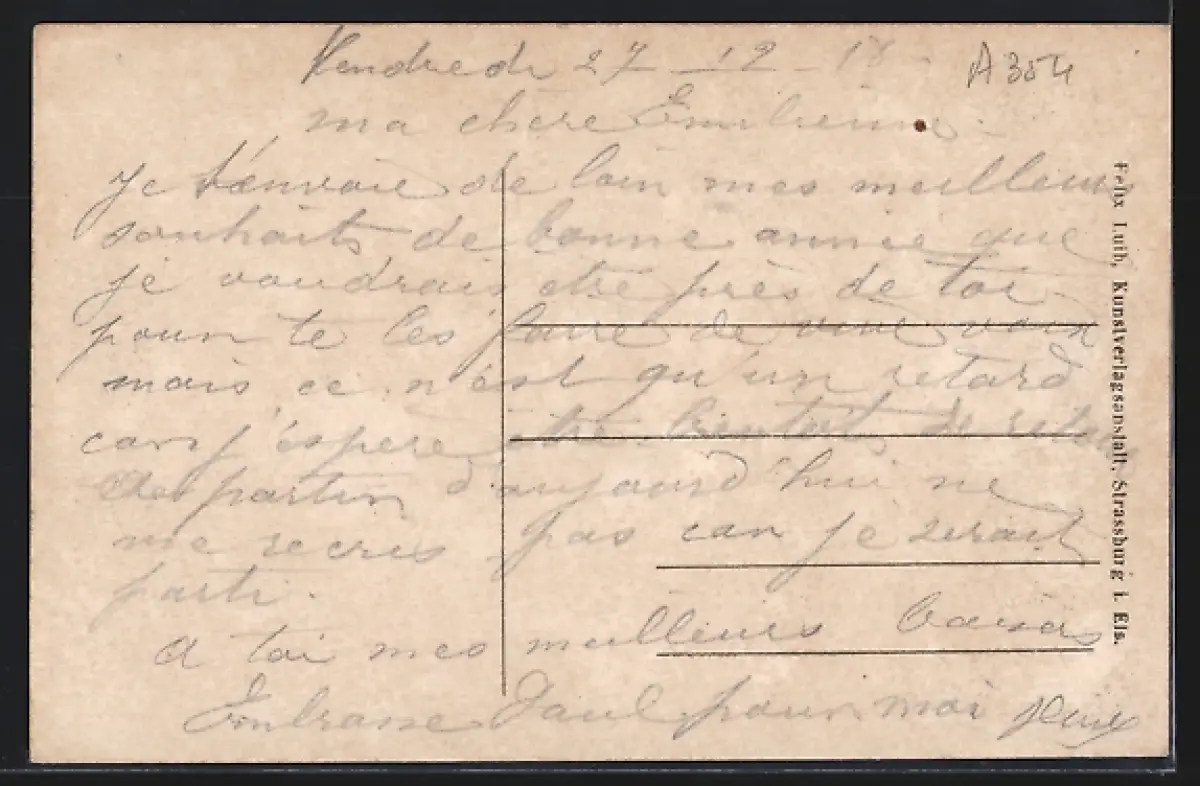 Vendredi 27 - 12 - 18
A354
ma chère Emilienne
Je t'envoie de loin mes meilleurs
souhaits de bonne année que
je voudrais etre près de toi
pour te les faire de vive voix
mais ce n'est qu'un retard
car j'éspere etre bientot de retour
partir d'aujourd'hui ne
me recris pas car je serait
parti.
A toi mes meilleurs baisers
Embrasse Paul pour moi
Felix Luib, Kunstverlagsanstalt, Strassburg i. Els.